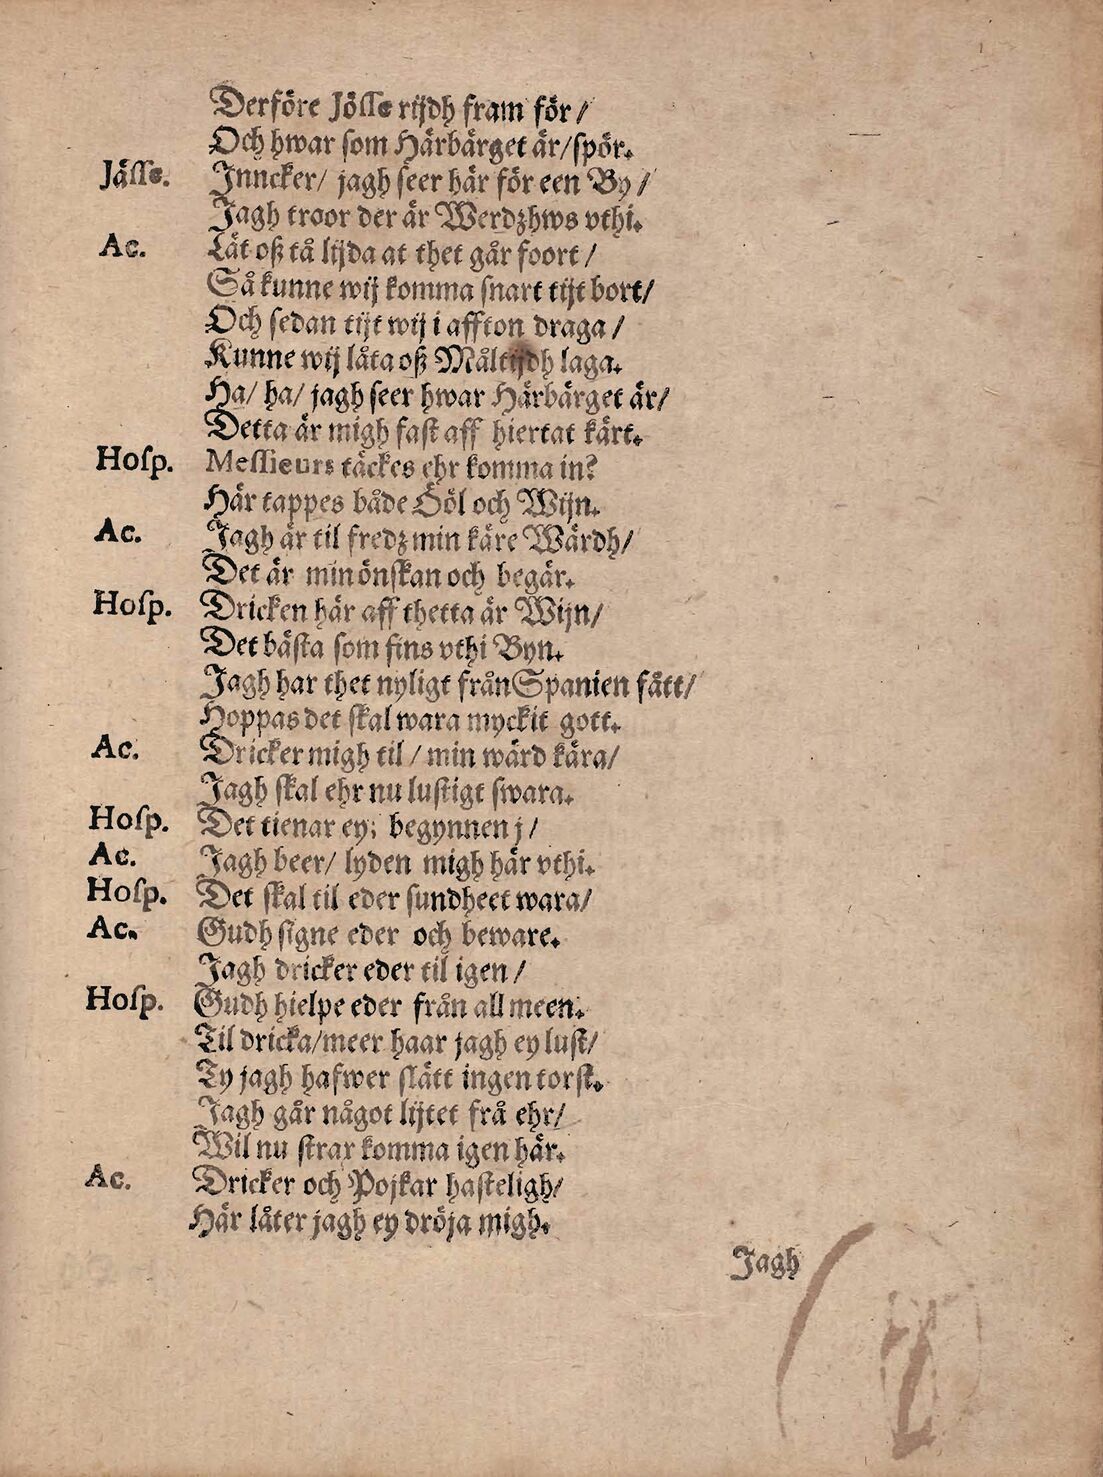 Derföre Jösse rijdh fram för /
Och hwar som Härbärget är/spör.
Jässe. Juncker/ jagh seer här för een By /
Jagh troor der är Werdzhws vthi.
Ac. Lät oß tå lijda at thet går foort /
Så kunne wij komma snart tijt bort/
Och sedan tijt wij i affton draga /
Kunne wij låta oß Måltijdh laga.
Ha/ ha/ jagh seer hwar Härbärget är/
Detta är migh fast aff hiertat kärt.
Hosp. Messieurs täckes ehr komma in?
Här tappes både Ööl och Wijn.
Ac. Jagh är til fredz min käre Wärdh/
Det är min önskan och begär.
Hosp. Dricken här aff thetta är Wijn/
Det bästa som fins vthi Byn.
Jagh har thet nyligt från Spanien fått/
Hoppas det skal wara myckit gott.
Ac. Dricker migh til / min wärd kära/
Jagh skal ehr nu lustigt swara.
Hosp. Det tienar ey; begynnen j /
Ac. Jagh beer/ lyden migh här vthi.
Hosp. Det skal til eder sundheet wara/
Ac. Gudh signe eder och beware.
Jagh dricker eder til igen /
Hosp. Gudh hielpe eder från all meen.
Til dricka/meer haar jagh ey lust/
Ty jagh hafwer slätt ingen torst.
Jagh går något lijtet frå ehr/
Wil nu strax komma igen här.
Ac. Dricker och Pojkar hasteligh/
Här låter jagh ey dröja migh.
Jagh